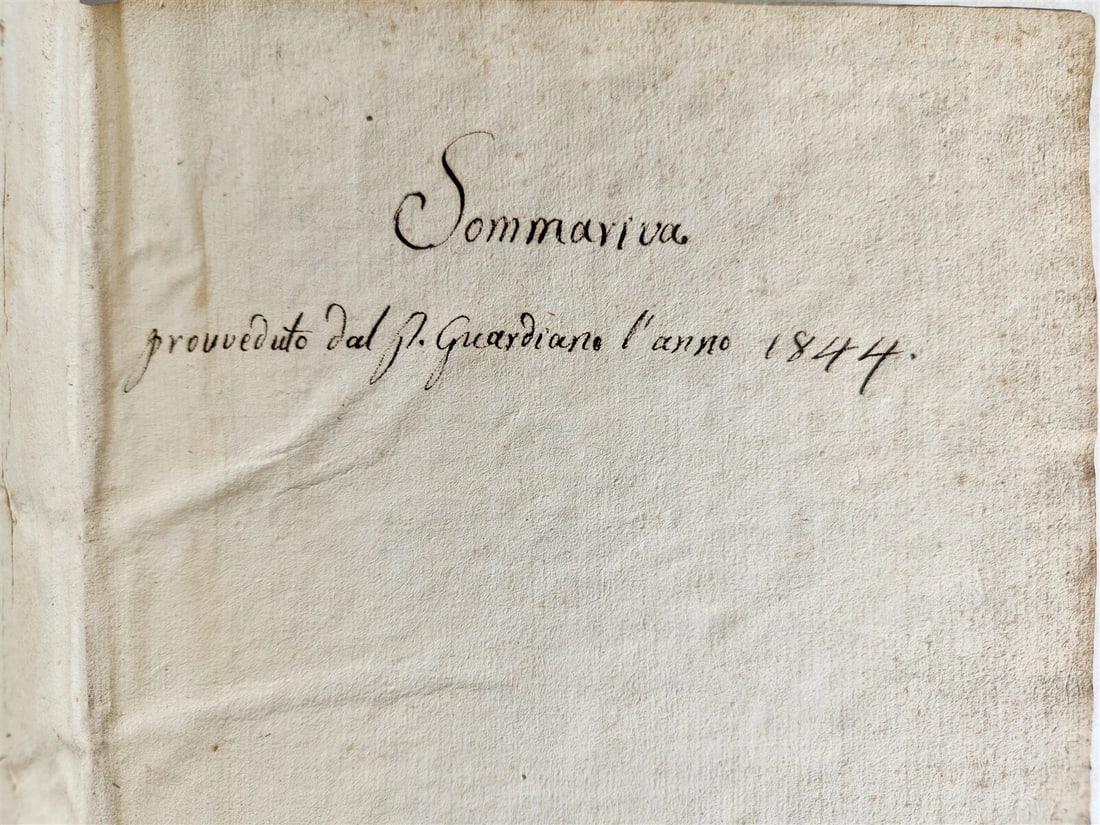 Sommariva
provveduto dal P. Guardiano l'anno 1844.